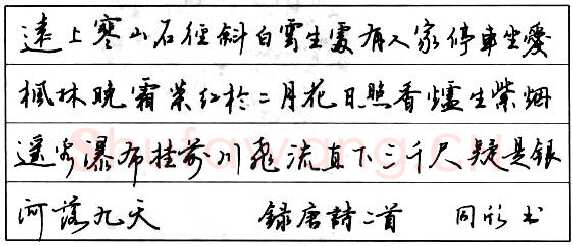 遠上寒山石徑斜白雲生處有人家停車坐愛
楓林晚霜葉紅於二月花日照香爐生紫烟
遙看瀑布挂前川飛流直下三千尺疑是銀
河落九天 錄唐詩二首 同 书